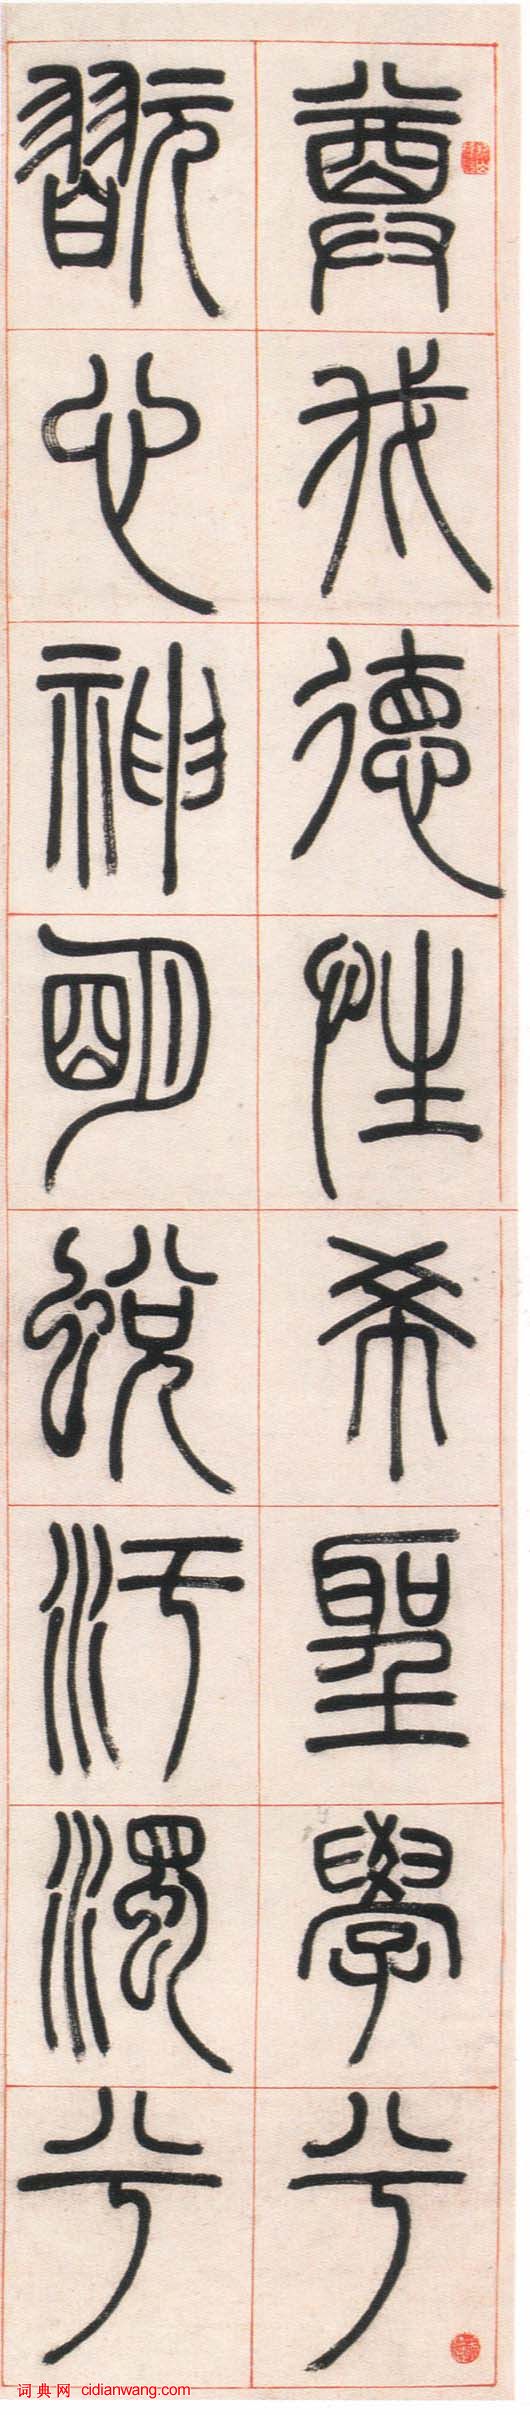 尊我德性希聖學兮
翫心神明蛻汙濁兮
词典网 cidianwang.com